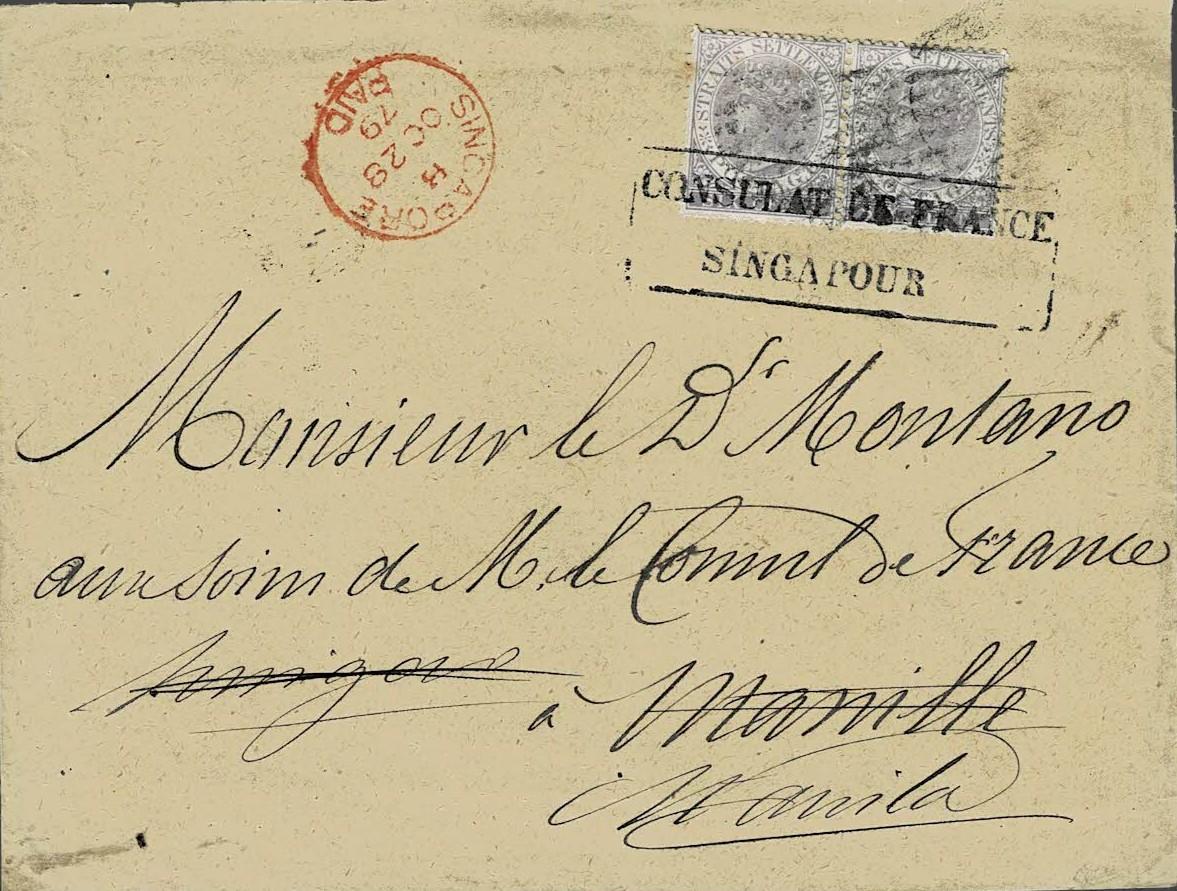 SINGAPORE
B
OC 28
79
PAID
STRAITS SETTLEMENTS
STRAITS SETTLEMENTS
CONSULAT DE FRANCE
SINGAPOUR
Monsieur le Dr Montano
aux soins de M. le Consul de France
à Manille
Manila